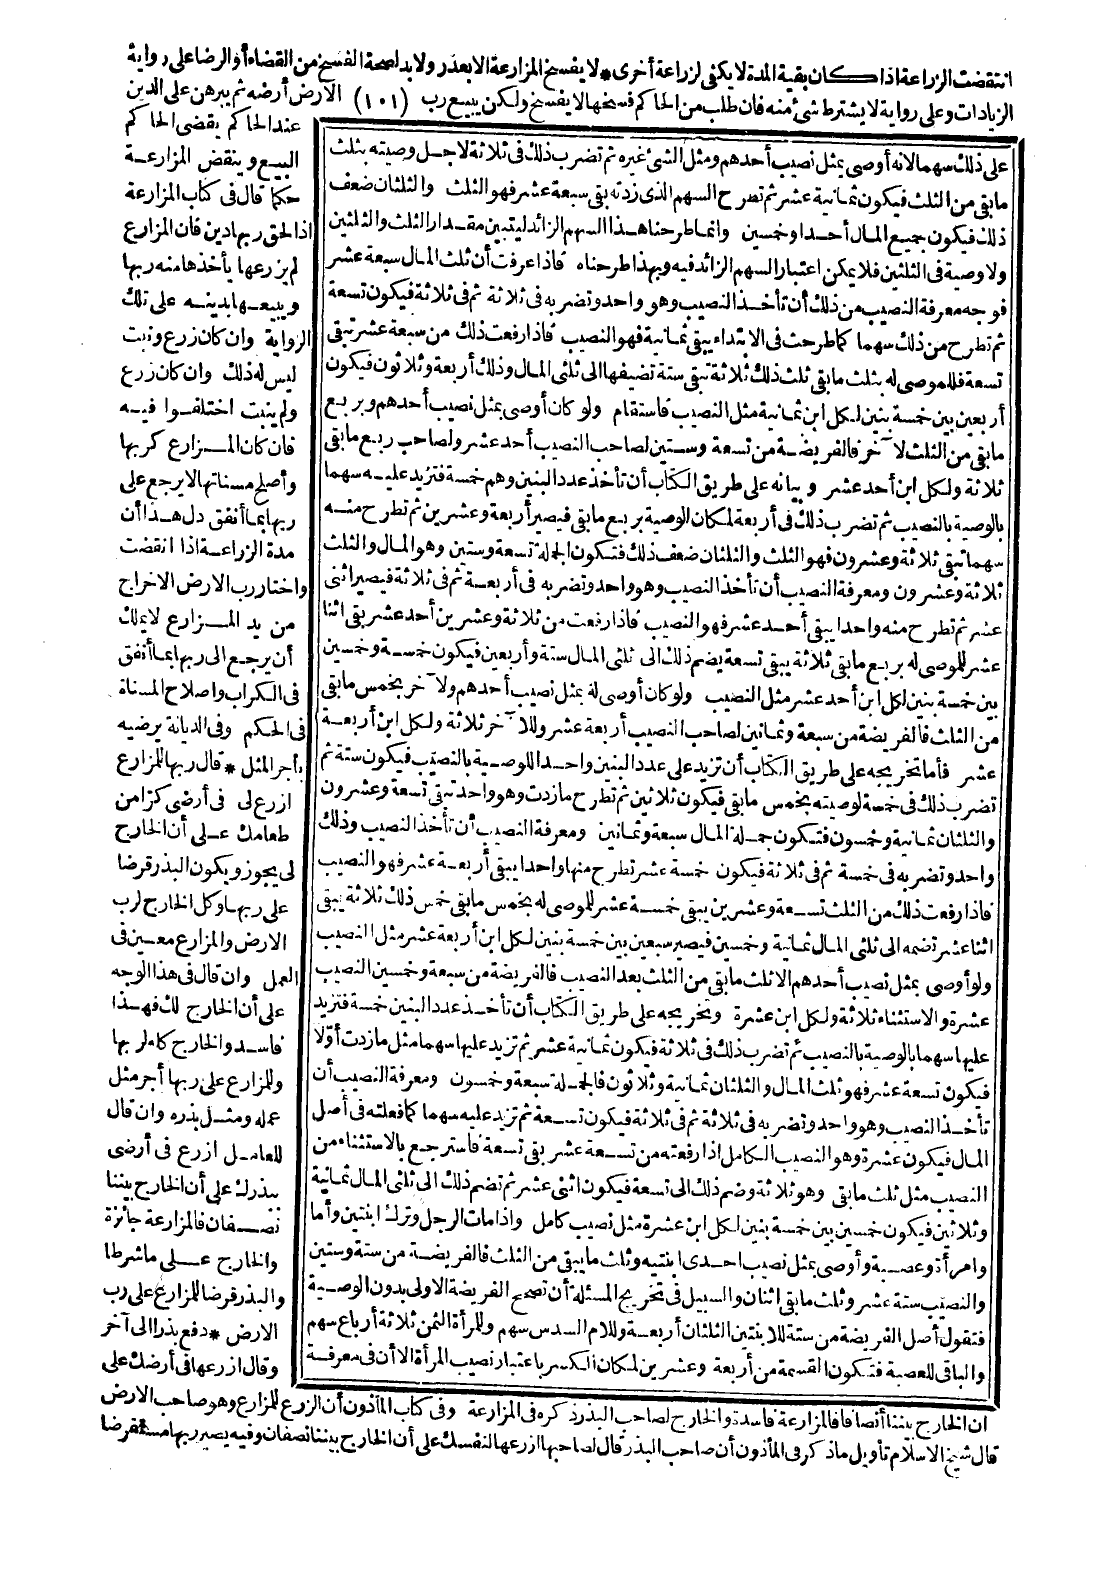 انتقضت الزراعة اذا كان بقية المدة لا يكفى لزراعة أخرى * لا يفسخ المزارعة الا بعذر ولا بد لصحة الفسخ من القضاء أو الرضا على رواية
الزيادات وعلى رواية لا يشترط شئ منه فان طلب من الحاكم فسخها لا يفسخ ولكن يبيع رب (١٠١) الارض أرضه ثم يبرهن على الدين
على ذلك سهما لانه أوصى بمثل نصيب أحدهم ومثل الشئ غيره ثم تضرب ذلك فى ثلاثة لاجل وصيته بثلث
مابقى من الثلث فيكون ثمانية عشر ثم تطرح السهم الذى زدته بقى سبعة عشر فهو الثلث والثلثان ضعف
ذلك فيكون جميع المال أحدا وخمسين وانما طرحنا هذا السهم الزائد ليتبين مقدار الثلث والثلثين
ولا وصية فى الثلثين فلا يمكن اعتبار السهم الزائد فيه وبهذا طرحناه فاذا عرفت أن ثلث المال سبعة عشر
فوجه معرفة النصيب من ذلك أن تأخذ النصيب وهو واحد وتضربه فى ثلاثة ثم فى ثلاثة فيكون تسعة
ثم تطرح من ذلك سهما كما طرحت فى الابتداء يبقى ثمانية فهو النصيب فاذا رفعت ذلك من سبعة عشر تبقى
تسعة فللموصى له بثلث مابقى ثلث ذلك ثلاثة تبقى ستة تضيفها الى ثلثى المال وذلك أربعة وثلاثون فيكون
أربعين بين خمسة بنين لكل ابن ثمانية مثل النصيب فاستقام ولو كان أوصى بمثل نصيب أحدهم وبربع
مابقى من الثلث لآخر فالفريضة من تسعة وستين لصاحب النصيب أحد عشر ولصاحب ربع مابقى
ثلاثة ولكل ابن أحد عشر وبيانه على طريق الكتاب أن تأخذ عدد البنين وهم خمسة فتزيد عليه سهما
بالوصية بالنصيب ثم تضرب ذلك فى أربعة لمكان الوصية بربع مابقى فيصير أربعة وعشرين ثم تطرح منه
سهما تبقى ثلاثة وعشرون فهو الثلث والثلثان ضعف ذلك فتكون الجملة تسعة وستين وهو المال والثلث
ثلاثة وعشرون ومعرفة النصيب أن تأخذ النصيب وهو واحد وتضربه فى أربعة ثم فى ثلاثة فيصير اثنى
عشر ثم تطرح منه واحدا يبقى أحد عشر فهو النصيب فاذا رفعت من ثلاثة وعشرين أحد عشر بقى اثنا
عشر للموصى له بربع مابقى ثلاثة يبقى تسعة يضم ذلك الى ثلثى المال ستة وأربعين فيكون خمسة وخمسين
بين خمسة بنين لكل ابن أحد عشر مثل النصيب ولو كان أوصى له بمثل نصيب أحدهم ولآخر بخمس مابقى
من الثلث فالفريضة من سبعة وثمانين لصاحب النصيب أربعة عشر وللآخر ثلاثة ولكل ابن أربعة
عشر فأما تخريجه على طريق الكتاب أن تزيد على عدد البنين واحدا للوصية بالنصيب فيكون ستة ثم
تضرب ذلك فى خمسة لوصيته بخمس مابقى فيكون ثلاثين ثم تطرح مازدت وهو واحد تبقى تسعة وعشرون
والثلثان ثمانية وخمسون فتكون جملة المال سبعة وثمانين ومعرفة النصيب أن تأخذ النصيب وذلك
واحد وتضربه فى خمسة ثم فى ثلاثة فيكون خمسة عشر تطرح منها واحدا يبقى أربعة عشر فهو النصيب
فاذا رفعت ذلك من الثلث تسعة وعشرين يبقى خمسة عشر للموصى له بخمس مابقى خمس ذلك ثلاثة يبقى
اثنا عشر تضمه الى ثلثى المال ثمانية وخمسين فيصير سبعين بين خمسة بنين لكل ابن أربعة عشر مثل النصيب
ولو أوصى بمثل نصيب أحدهم الا ثلث مابقى من الثلث بعد النصيب فالفريضة من سبعة وخمسين النصيب
عشرة والاستثناء ثلاثة ولكل ابن عشرة وتخريجه على طريق الكتاب أن تأخذ عدد البنين خمسة فتزيد
عليها سهما بالوصية بالنصيب ثم تضرب ذلك فى ثلاثة فيكون ثمانية عشر ثم تزيد عليها سهما مثل مازدت أولا
فيكون تسعة عشر فهو ثلث المال والثلثان ثمانية وثلاثون فالجملة تسعة وخمسون ومعرفة النصيب أن
تأخذ النصيب وهو واحد وتضربه فى ثلاثة ثم فى ثلاثة فيكون تسعة ثم تزيد عليه سهما كما فعلته فى أصل
المال فيكون عشرة وهو النصيب الكامل اذا رفعته من تسعة عشر بقى تسعة فاسترجع بالاستثناء من
النصيب مثل ثلث مابقى وهو ثلاثة وضم ذلك الى تسعة فيكون اثنى عشر ثم تضم ذلك الى ثلثى المال ثمانية
وثلاثين فيكون خمسين بين خمسة بنين لكل ابن عشرة مثل نصيب كامل واذا مات الرجل وترك ابنتين وأما
وامرأة وعصبة وأوصى بمثل نصيب احدى ابنتيه وثلث مايبقى من الثلث فالفريضة من ستة وستين
والنصيب ستة عشر وثلث مابقى اثنان والسبيل فى تخريج المسئلة أن تصحح الفريضة الاولى بدون الوصية
فتقول أصل الفريضة من ستة للابنتين الثلثان أربعة وللام السدس سهم وللمرأة الثمن ثلاثة أرباع سهم
والباقى للعصبة فتكون القسمة من أربعة وعشرين لمكان الكسر باعتبار نصيب المرأة الا أن فى معرفة
عند الحاكم يقضى الحاكم
البيع وينقض المزارعة
حكما قال فى كتاب المزارعة
اذا لحق ربها دين فان المزارع
لم يزرعها يأخذها منه ربها
ويبيعها بدينه على تلك
الرواية وان كان زرع ونبت
ليس له ذلك وان كان زرع
ولم ينبت اختلفوا فيه
فان كان المزارع كربها
وأصلح مسناتها لا يرجع على
ربها بما أنفق دل هذا أن
مدة الزراعة اذا انقضت
واختار رب الارض الاخراج
من يد المزارع لا يملك
أن يرجع الى ربها بما أنفق
فى الكراب واصلاح المسناة
فى الحكم وفى الديانة يرضيه
بأجر المثل * قال ربها للمزارع
ازرع لى فى أرضى كرا من
طعامك على أن الخارج
لى يجوز ويكون البذر قرضا
على ربها وكل الخارج لرب
الارض والمزارع معين فى
العمل وان قال فى هذا الوجه
على أن الخارج لك فهذا
فاسد والخارج كله لربها
وللمزارع على ربها أجر مثل
عمله ومثل بذره وان قال
للعامل ازرع فى أرضى
ببذرك على أن الخارج بيننا
نصفان فالمزارعة جائزة
والخارج على ماشرطا
والبذر قرضا للمزارع على رب
الارض * دفع بذرا الى آخر
وقال ازرعها فى أرضك على
ان الخارج بيننا أنصافا فالمزارعة فاسدة والخارج لصاحب البذر ذكره فى المزارعة وفى كتاب المأذون أن الزرع للمزارع وهو صاحب الارض
قال شيخ الاسلام تأويل ماذكر فى المأذون أن صاحب البذر قال لصاحبها ازرعها لنفسك على أن الخارج بيننا نصفان وفيه يصير ربها مستقرضا